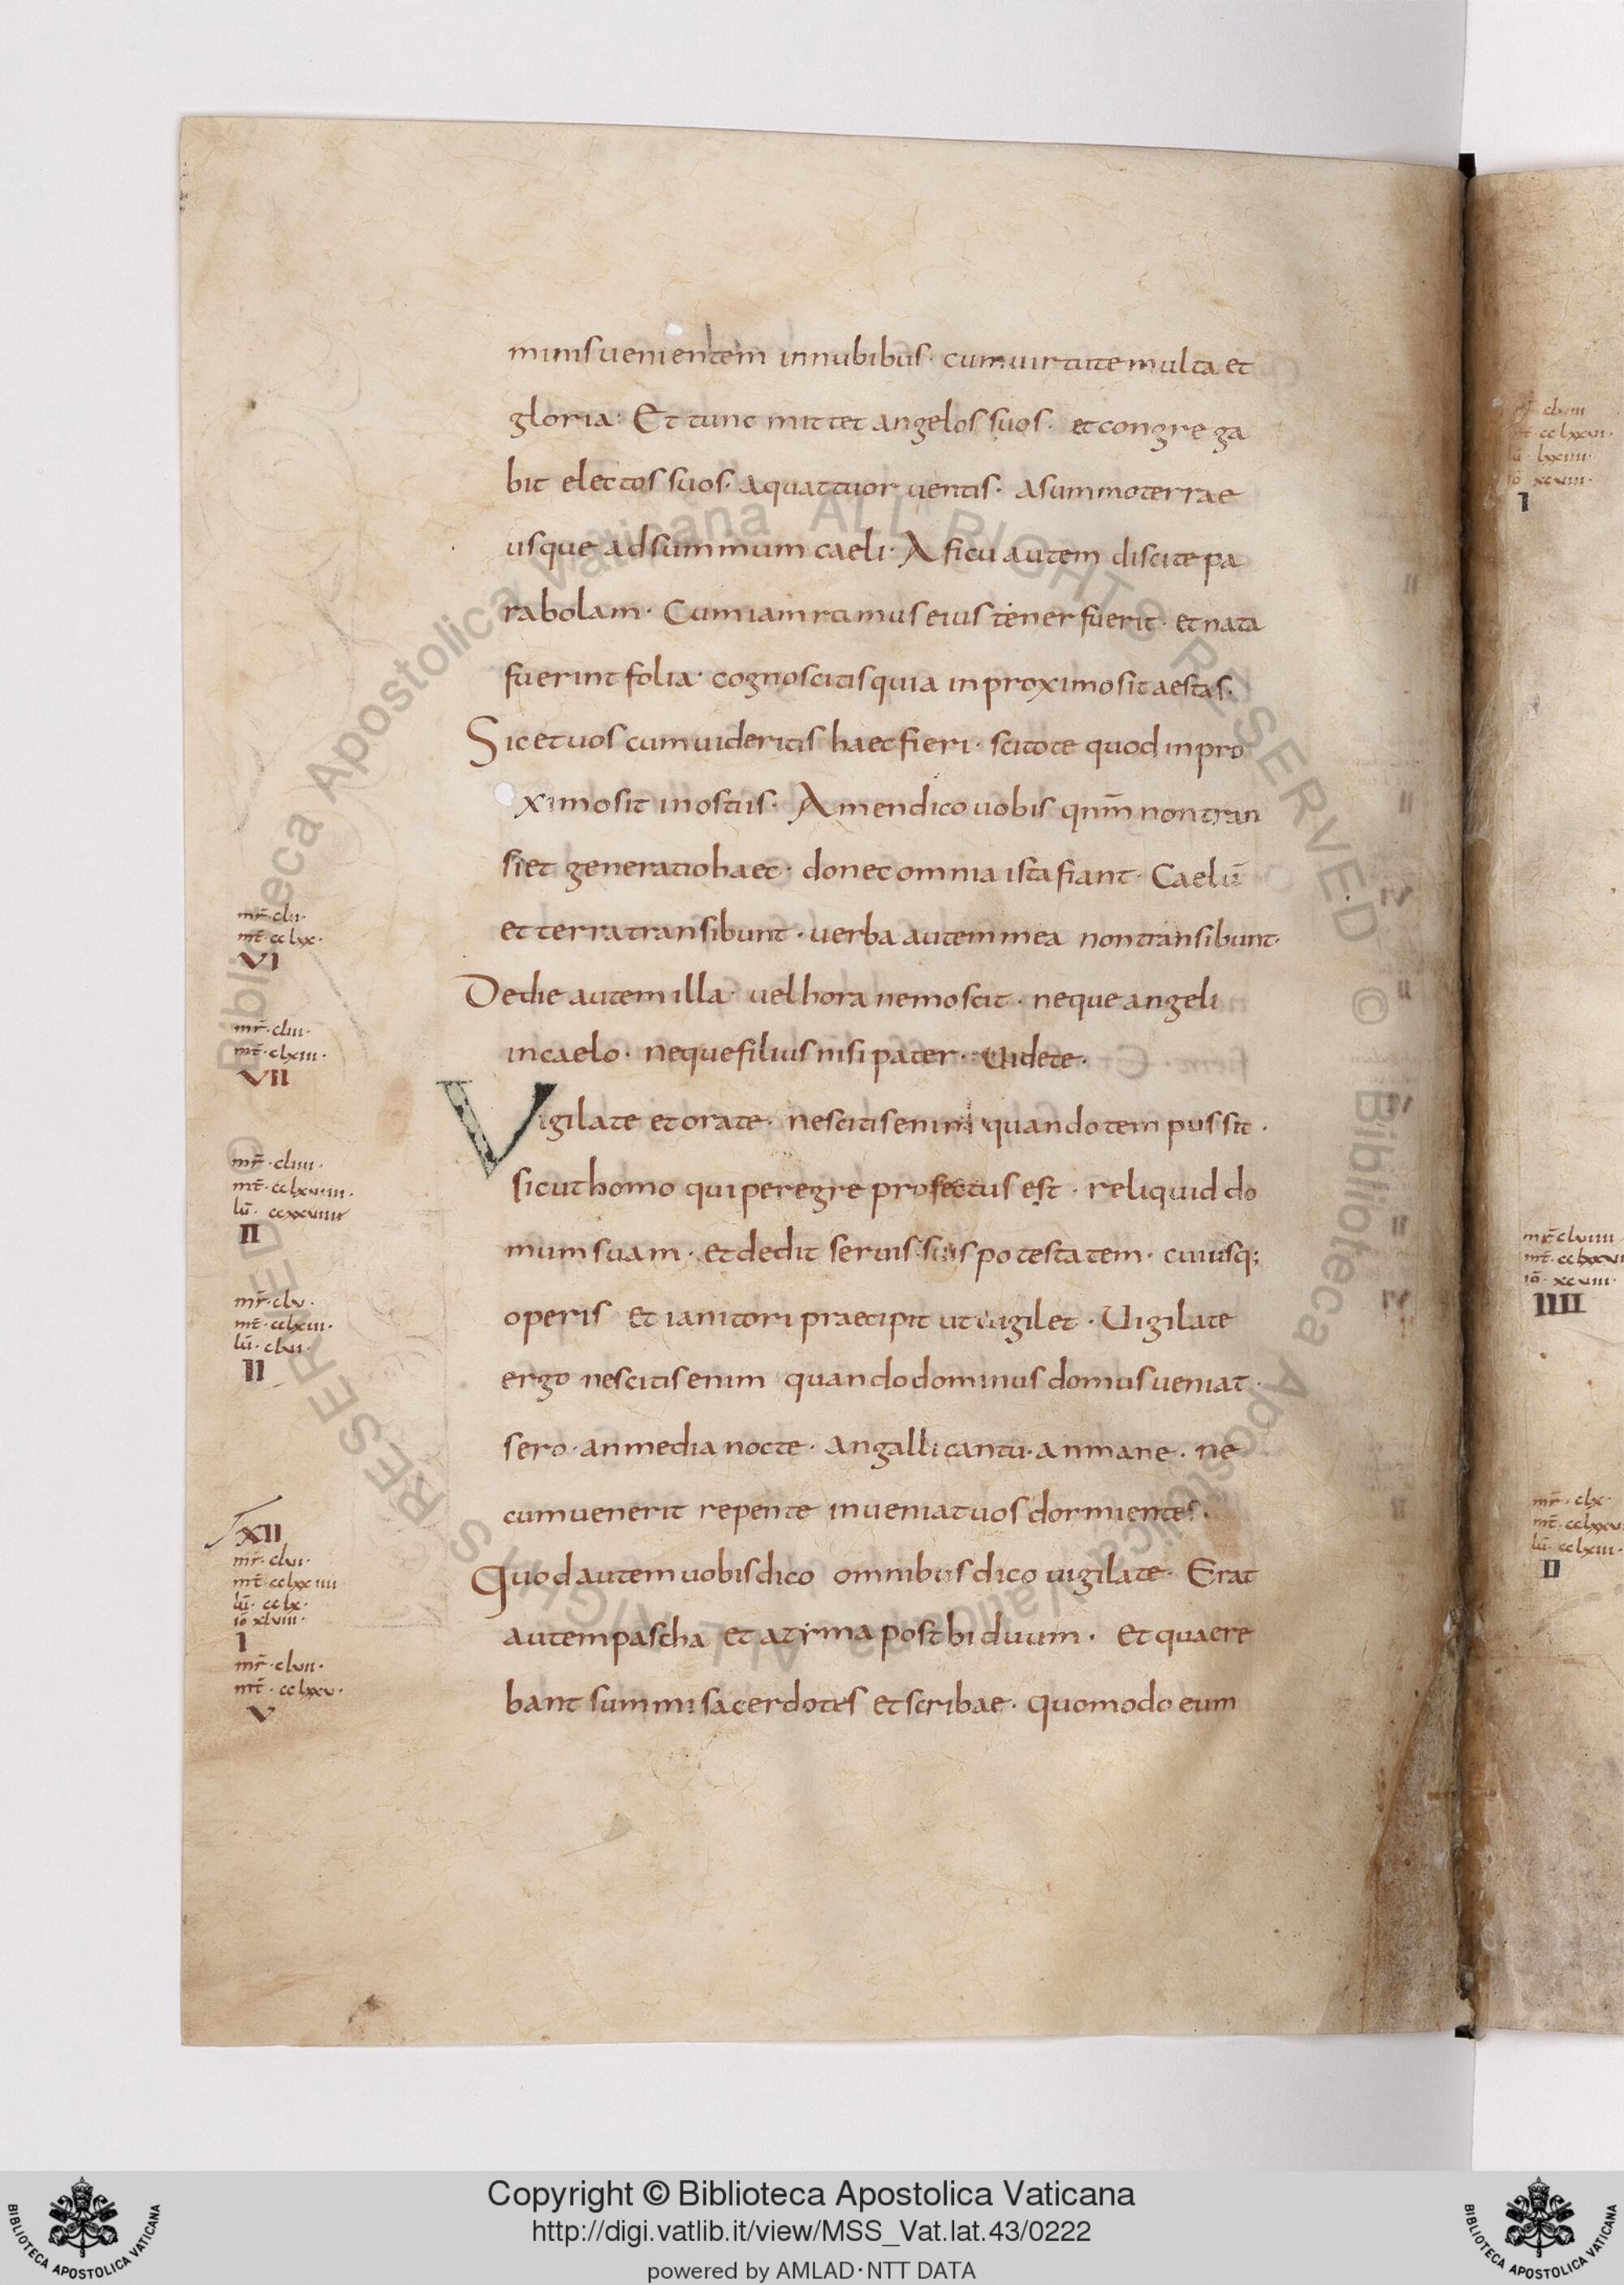 minis uenientem in nubibus · cum uirtute multa et
gloria · Et tunc mittet angelos suos · et congrega
bit electos suos · a quattuor uentis · a summo terrae
usque ad summum caeli · A ficu autem discite pa
rabolam · Cum iam ramus eius tener fuerit · et nata
fuerint folia · cognoscitis quia in proximo sit aestas ·
Sic et uos cum uideritis haec fieri · scitote quod in pro
ximo sit in ostiis · Amen dico uobis qnm̅ non tran
siet generatio haec · donec omnia ista fiant · Caelū
et terra transibunt · uerba autem mea non transibunt ·
De die autem illa · uel hora nemo scit · neque angeli
in caelo · neque filius nisi pater · Uidete ·
Vigilate et orate · nescitis enim quando tempus sit ·
sicut homo qui peregre profectus est · reliquid do
mum suam · et dedit seruis suis potestatem · cuiusq;
operis et ianitori praecipit ut uigilet · Uigilate
ergo nescitis enim quando dominus domus ueniat ·
sero · an media nocte · an galli cantu · an mane · ne
cum uenerit repente inueniat uos dormientes ·
Quod autem uobis dico omnibus dico uigilate · Erat
autem pascha et azyma post biduum · et quaere
bant summi sacerdotes et scribae · quomodo eum
mr̄ · clii ·
mt̄ · cclxx ·
VI
mr̄ · cliii ·
mt̄ · clxiii ·
VII
mr̄ · cliiii ·
II
mr̄ · clv ·
mt̄ · cclxiii ·
lū · clvi ·
II
XII
mr̄ · clvi ·
mt̄ · cclxxiiii
lū · cclx ·
iō xlviii ·
I
mr̄ · clvii ·
mt̄ · cclxxv ·
V
I
mr̄ clviiii
iō · xcviii ·
IIII
mr̄ · clx ·
lū · cclxiii ·
II
© Biblioteca Apostolica Vaticana ALL RIGHTS RESERVED
© Biblioteca Apostolica Vaticana ALL RIGHTS RESERVED
Copyright © Biblioteca Apostolica Vaticana
http://digi.vatlib.it/view/MSS_Vat.lat.43/0222
powered by AMLAD·NTT DATA
BIBLIOTECA APOSTOLICA VATICANA
BIBLIOTECA APOSTOLICA VATICANA